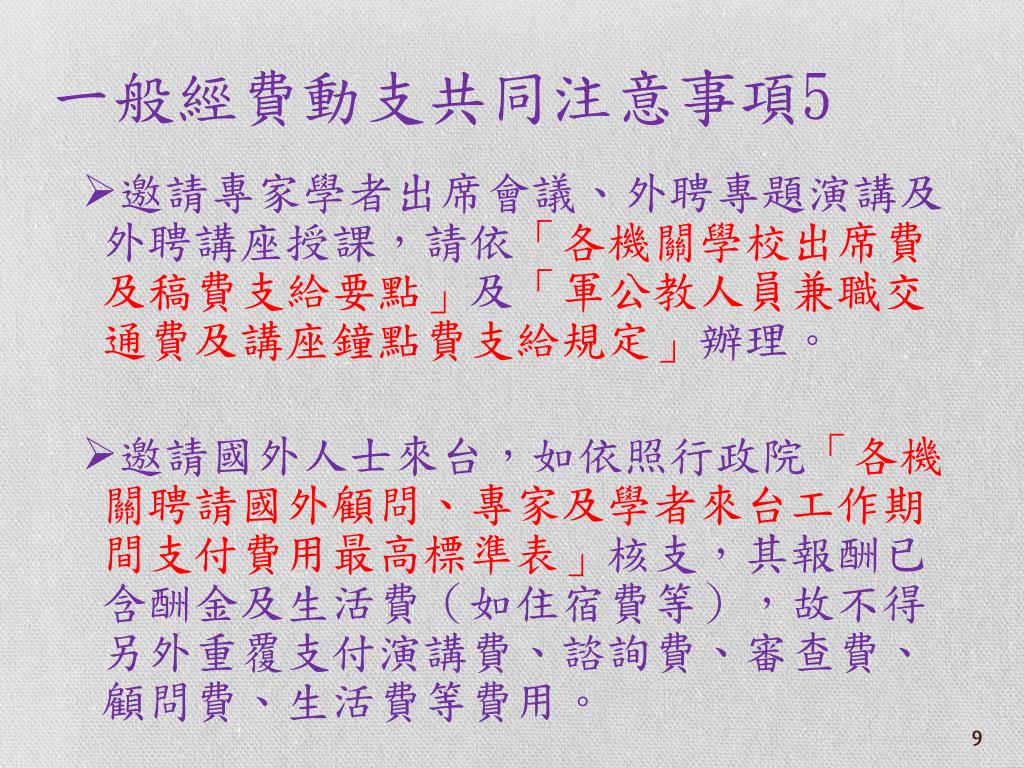 一般經費動支共同注意事項5
➢邀請專家學者出席會議、外聘專題演講及
外聘講座授課，請依「各機關學校出席費
及稿費支給要點」及「軍公教人員兼職交
通費及講座鐘點費支給規定」辦理。
➢邀請國外人士來台，如依照行政院「各機
關聘請國外顧問、專家及學者來台工作期
間支付費用最高標準表」核支，其報酬已
含酬金及生活費（如住宿費等），故不得
另外重覆支付演講費、諮詢費、審查費、
顧問費、生活費等費用。
9